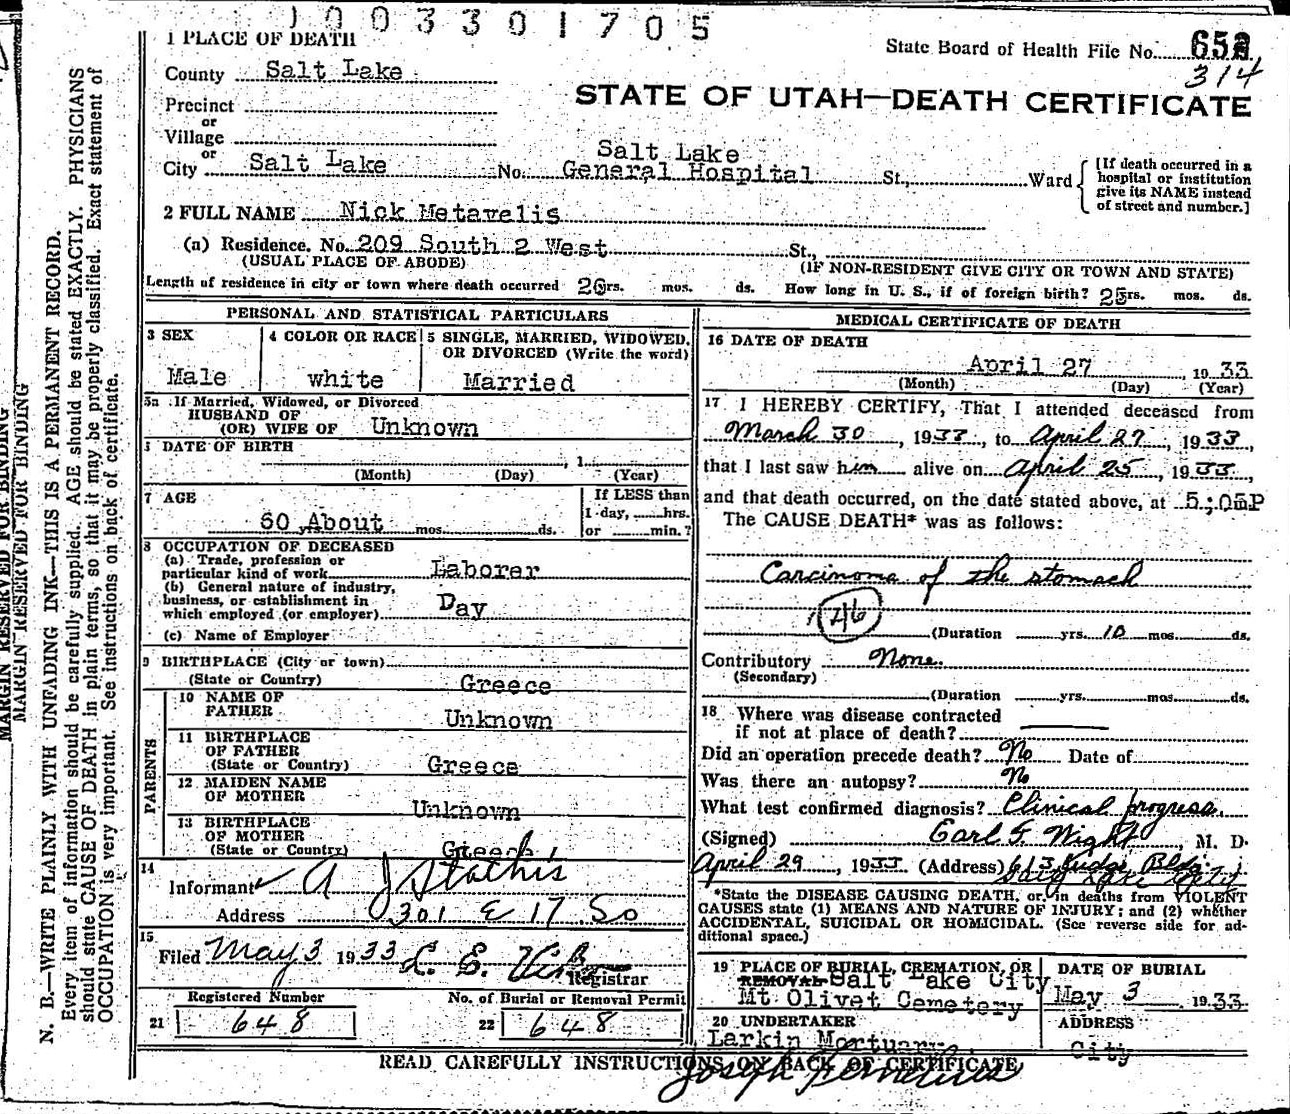 1003301705
1 PLACE OF DEATH
State Board of Health File No. 652
314
County Salt Lake
STATE OF UTAH—DEATH CERTIFICATE
Precinct
or
Village
or
City Salt Lake No. Salt Lake General Hospital St., Ward
[If death occurred in a hospital or institution give its NAME instead of street and number.]
2 FULL NAME Nick Metavelis
(a) Residence. No. 209 South 2 West St.,
(USUAL PLACE OF ABODE) (IF NON-RESIDENT GIVE CITY OR TOWN AND STATE)
Length of residence in city or town where death occurred 20 yrs. mos. ds. How long in U. S., if of foreign birth? 25 yrs. mos. ds.
PERSONAL AND STATISTICAL PARTICULARS
3 SEX
Male
4 COLOR OR RACE
white
5 SINGLE, MARRIED, WIDOWED, OR DIVORCED (Write the word)
Married
5a If Married, Widowed, or Divorced
HUSBAND OF
(OR) WIFE OF Unknown
DATE OF BIRTH
, 1
(Month) (Day) (Year)
7 AGE
60 yrs. About mos. ds.
If LESS than
1 day, hrs.
or min.?
8 OCCUPATION OF DECEASED
(a) Trade, profession or
particular kind of work Laborer
(b) General nature of industry,
business, or establishment in
which employed (or employer) Day
(c) Name of Employer
9 BIRTHPLACE (City or town)
(State or Country) Greece
PARENTS
10 NAME OF
FATHER Unknown
11 BIRTHPLACE
OF FATHER
(State or Country) Greece
12 MAIDEN NAME
OF MOTHER Unknown
13 BIRTHPLACE
OF MOTHER
(State or Country) Greece
14
Informant A J Stathis
Address 301 E 17 So
15
Filed May 3 1933 L. E.
Registrar
Registered Number
21 648
No. of Burial or Removal Permit
22 648
MEDICAL CERTIFICATE OF DEATH
16 DATE OF DEATH
April 27 1933
(Month) (Day) (Year)
17 I HEREBY CERTIFY, That I attended deceased from
March 30, 1933, to April 27, 1933,
that I last saw him alive on April 25, 1933,
and that death occurred, on the date stated above, at 5;05P
The CAUSE DEATH* was as follows:
Carcinoma of the stomach
146
(Duration yrs. 10 mos. ds.
Contributory None.
(Secondary)
(Duration yrs. mos. ds.
18 Where was disease contracted
if not at place of death?
Did an operation precede death? No Date of
Was there an autopsy? No
What test confirmed diagnosis? Clinical progress.
(Signed) Earl F. Wight, M. D.
April 29, 1933 (Address) 613 Judge Bldg.
Salt Lake City
*State the DISEASE CAUSING DEATH, or, in deaths from VIOLENT
CAUSES state (1) MEANS AND NATURE OF INJURY; and (2) whether
ACCIDENTAL, SUICIDAL OR HOMICIDAL. (See reverse side for ad-
ditional space.)
19 PLACE OF BURIAL, CREMATION, OR
REMOVAL Salt Lake City
Mt Olivet Cemetery
DATE OF BURIAL
May 3 1933
20 UNDERTAKER
Larkin Mortuary
ADDRESS
City
READ CAREFULLY INSTRUCTIONS ON BACK OF CERTIFICATE
Joseph
MARGIN RESERVED FOR BINDING
MARGIN RESERVED FOR BINDING
N. B.—WRITE PLAINLY WITH UNFADING INK—THIS IS A PERMANENT RECORD.
Every item of information should be carefully supplied. AGE should be stated EXACTLY. PHYSICIANS
should state CAUSE OF DEATH in plain terms, so that it may be properly classified. Exact statement of
OCCUPATION is very important. See instructions on back of certificate.